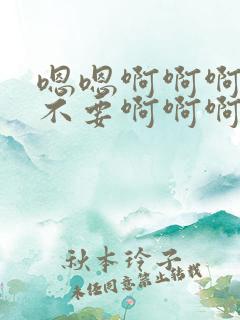 嗯嗯啊啊啊
不要啊啊啊
秋本玲子
未经同意禁止转载